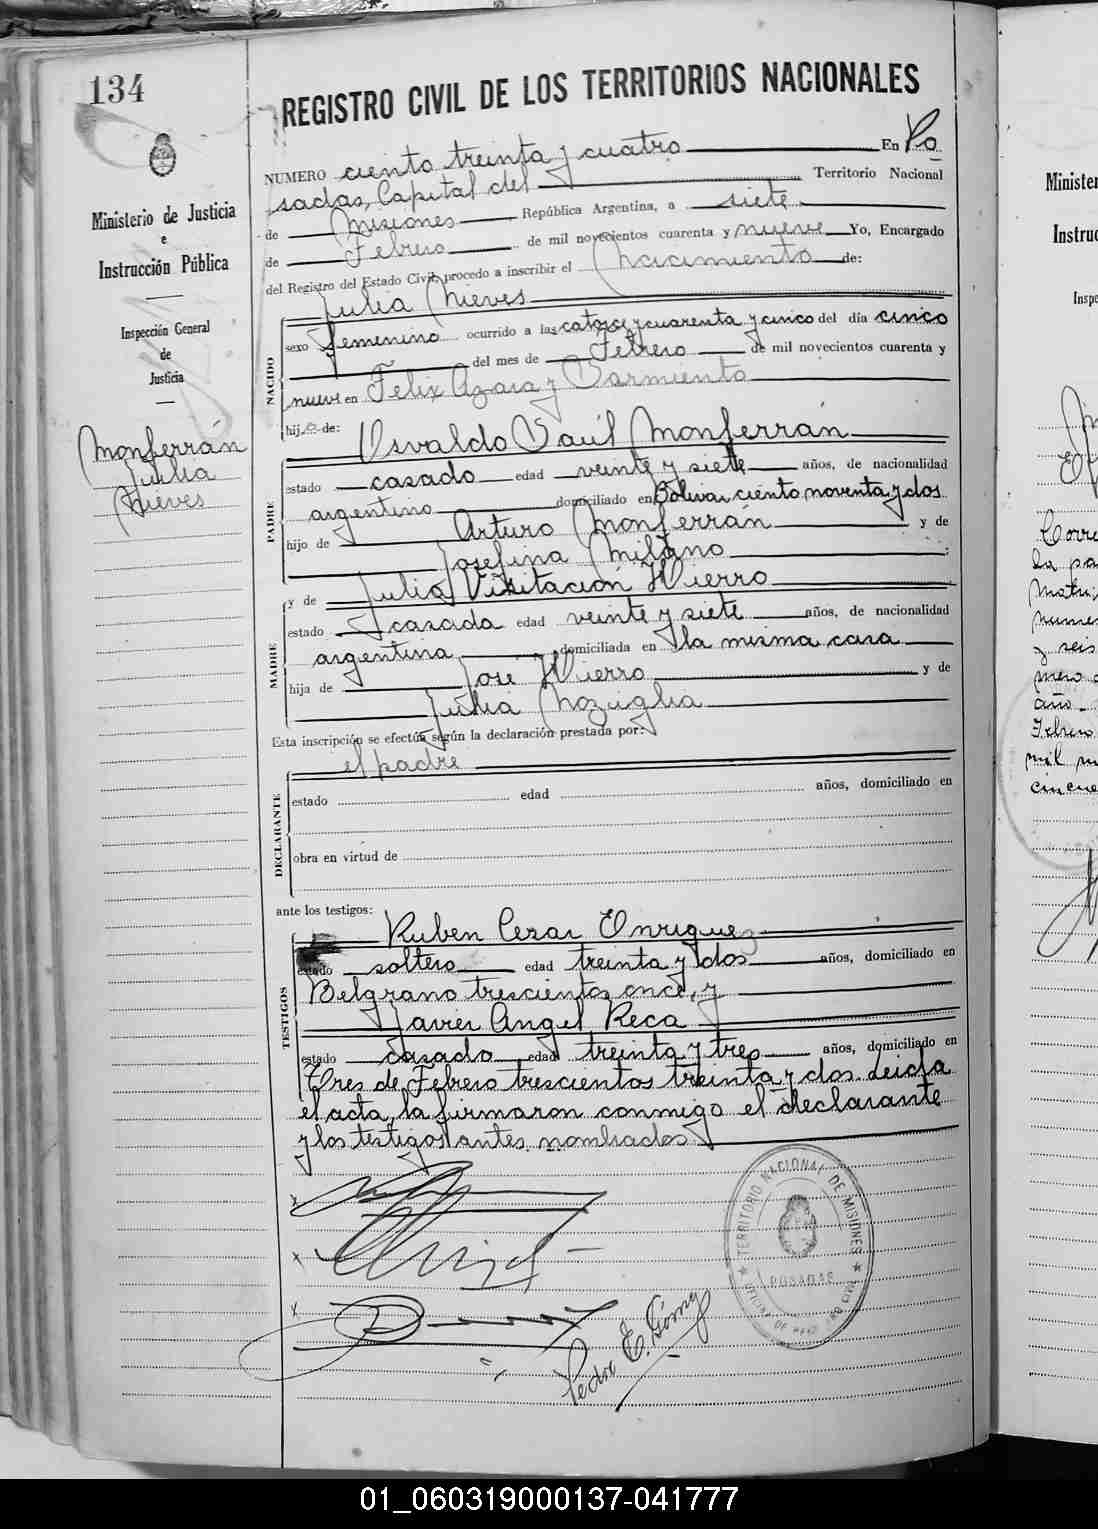 134
REGISTRO CIVIL DE LOS TERRITORIOS NACIONALES
Ministerio de Justicia
e
Instrucción Pública
Inspección General
de
Justicia
Monferrán
Julia
Nieves
NUMERO ciento treinta y cuatro En Po
sadas, Capital del Territorio Nacional
de Misiones República Argentina, a siete
de Febrero de mil novecientos cuarenta y nueve Yo, Encargado
del Registro del Estado Civil, procedo a inscribir el Nacimiento de:
NACIDO
Julia Nieves
sexo femenino ocurrido a las catorce y cuarenta y cinco del día cinco
del mes de Febrero de mil novecientos cuarenta y
nueve en Felix Azara y Sarmiento
hija de:
PADRE
Osvaldo Saúl Monferrán
estado casado edad veinte y siete años, de nacionalidad
argentino domiciliado en Bolivar ciento noventa y dos
hijo de Arturo Monferrán y de
Josefina Milano
MADRE
y de Julia Visitación Hierro
estado casada edad veinte y siete años, de nacionalidad
argentina domiciliada en la misma casa
hija de José Hierro y de
Julia Noziglia
Esta inscripción se efectúa según la declaración prestada por:
el padre
DECLARANTE
estado edad años, domiciliado en
obra en virtud de
ante los testigos:
TESTIGOS
Ruben Cesar Enrique
estado soltero edad treinta y dos años, domiciliado en
Belgrano trescientos once, y
Javier Angel Reca
estado casado edad treinta y tres años, domiciliado en
Tres de Febrero trescientos treinta y dos. Leida
el acta, la firmaron conmigo el declarante
y los testigos antes nombrados
TERRITORIO NACIONAL DE MISIONES
POSADAS
Pedro E. Gómez
Minister
Instruc
Inspe
Corre
la pa
matri
nume
y seis
mero
año
Febrero
mil
cincue
01_060319000137-041777